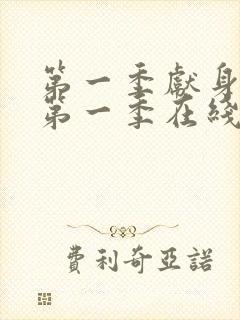 第一季獻身
第一季在綫
費利奇亞諾